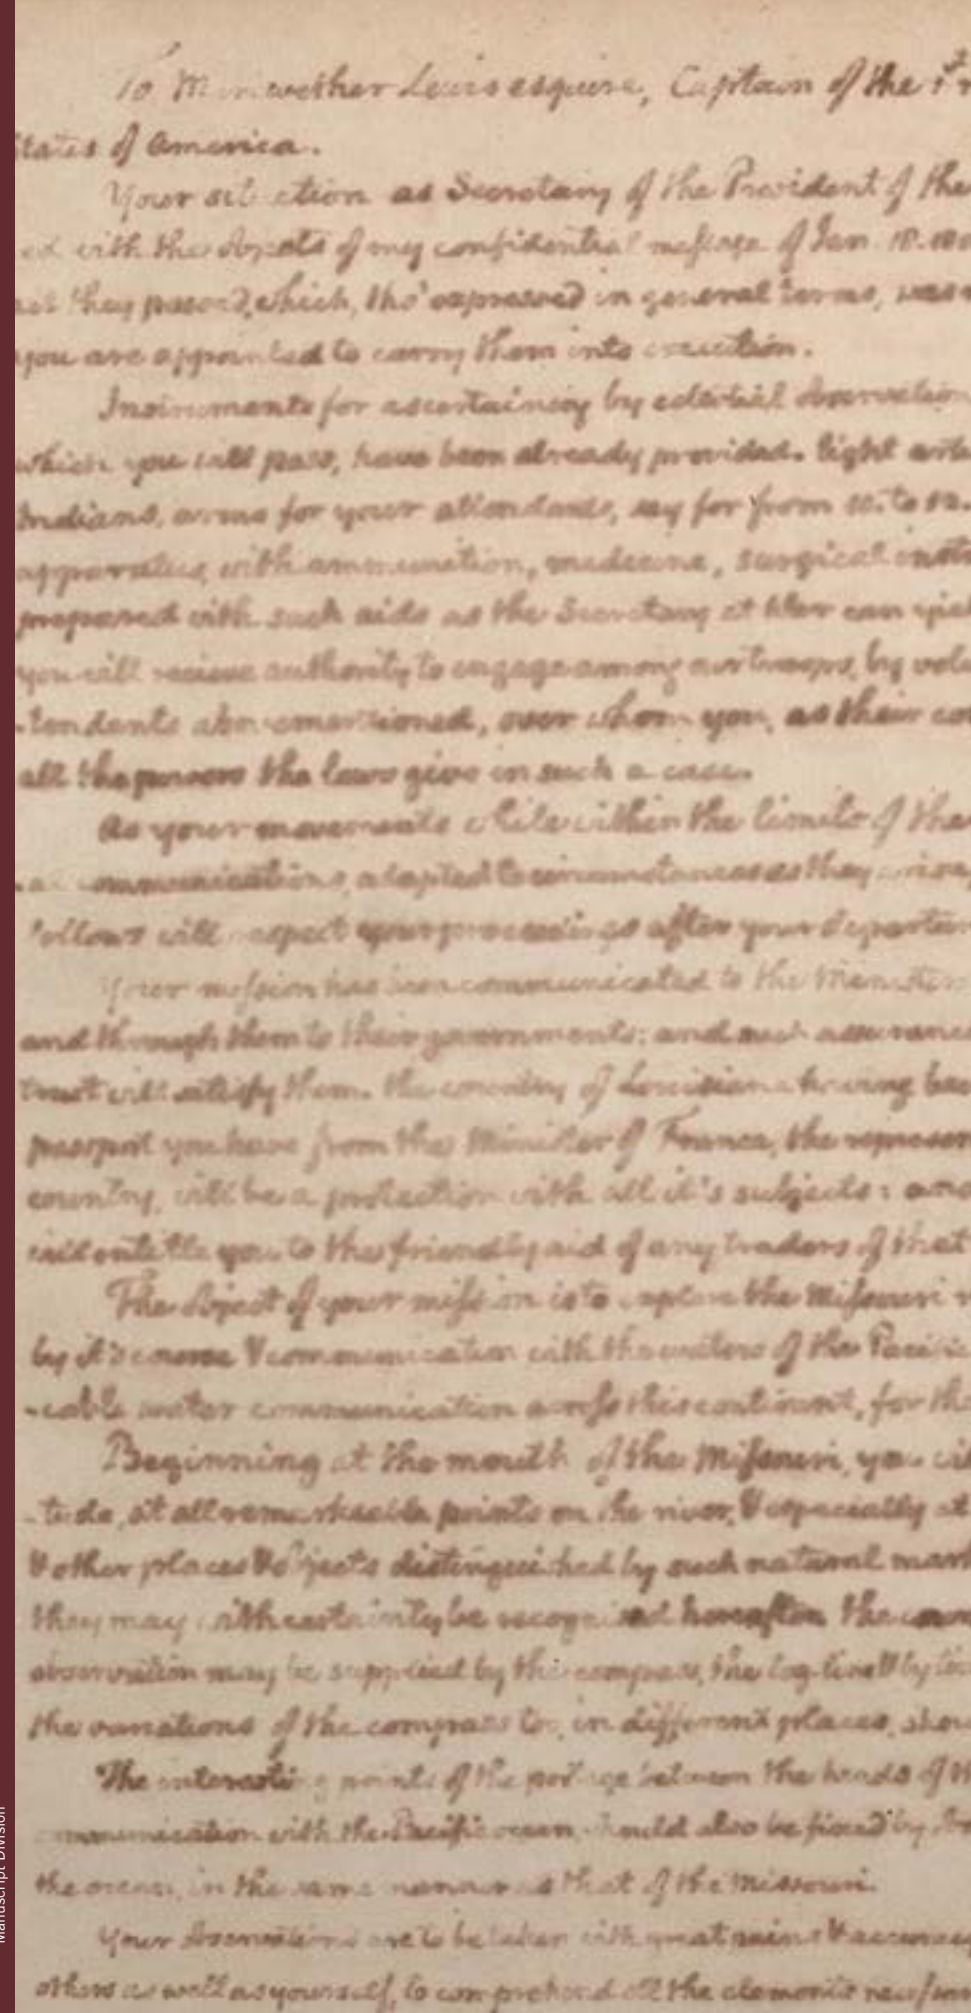 To Meriwether Lewis esquire, Captain of the 1st
States of America.
Your situation as Secretary of the President of the
ed with the objects of my confidential message of Jan. 18. 180
act they passed, which, tho' expressed in general terms, was
you are appointed to carry them into execution.
Instruments for ascertaining by celestial observation
which you will pass, have been already provided. light arti
Indians, arms for your attendants, say for from 10. to 12.
apparatus, with ammunition, medecine, surgical instr
prepared with such aids as the Secretary at War can yiel
you will recieve authority to engage among our troops, by volu
-tendants abovementioned, over whom you, as their co
all the powers the laws give in such a case.
As your movements while within the limits of the
communications, adapted to circumstances as they arise,
follows will respect your proceedings after your departur
Your mission has been communicated to the Ministers
and through them to their governments: and such assurance
trust will satisfy them. the country of Louisiana having bee
passport you have from the Minister of France, the represen
country, will be a protection with all it's subjects: and
will entitle you to the friendly aid of any traders of that
The object of your mission is to explore the Missouri r
by it's course & communication with the waters of the Pacific
-cable water communication across this continent, for the
Beginning at the mouth of the Missouri, you wil
-tude, at all remarkeable points on the river, & especially at
& other places & objects distinguished by such natural mark
they may with certainty be recognised hereafter. the cour
observation may be supplied by the compass, the log-line & by ti
the variations of the compass too, in different places, shou
The interesting points of the portage between the heads of th
communication with the Pacific ocean, should also be fixed by ob
the ocean, in the same manner as that of the Missouri.
Your observations are to be taken with great pains & accuracy
others as well as yourself, to comprehend all the elements necessa
Manuscript Division